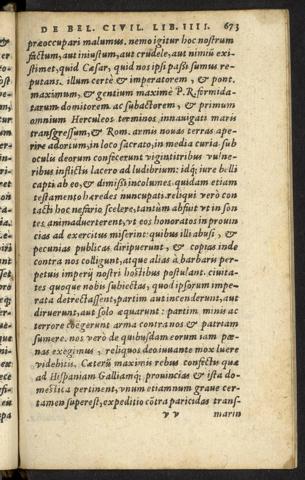 DE BEL. CIVIL. LIB. IIII. 673
præoccupari malumus. nemo igitur hoc nostrum
factum, aut iniustum, aut crudele, aut nimiū exi-
stimet, quid Cæsar, quid nos ipsi passi sumus re-
putans. illum certè & imperatorem, & pont.
maximum, & gentium maximè P. R. formida-
tarum domitorem ac subactorem, & primum
omnium Herculeos terminos innauigati maris
transgressum, & Rom. armis nouas terras ape-
rire adortum, in loco sacrato, in media curia. sub
oculis deorum confecerunt vigintitribus vulne-
ribus inflictis lacero ad ludibrium: idq; iure belli
capti ab eo, & dimissi incolumes. quidam etiam
testamento hæredes nuncupati. reliqui verò con
tacti hoc nefario scelere, tantùm abfuit vt in son
tes animaduerterent, vt eos honoratos in prouin
cias ad exercitus miserint: quibus illi abusi, &
pecunias publicas diripuerunt, & copias inde
contra nos colligunt, atque alias à barbaris per-
petuis imperij nostri hostibus postulant. ciuita-
tes quoque nobis subiectas, quod ipsorum impe-
rata detrectassent, partim aut incenderunt, aut
diruerunt, aut solo æquarunt: partim minis ac
terrore coëgerunt arma contra nos & patriam
sumere. nos verò de quibusdam eorum iam pœ-
nas exegimus, reliquos deo iuuante mox luere
videbitis. Cæterū maximis rebus confectis quæ
ad Hispaniam Galliamq; prouincias & ista do-
mestica pertinent, vnum etiamnum graue cer-
tamen superest, expeditio cōtra paricidas trans-
v v marin